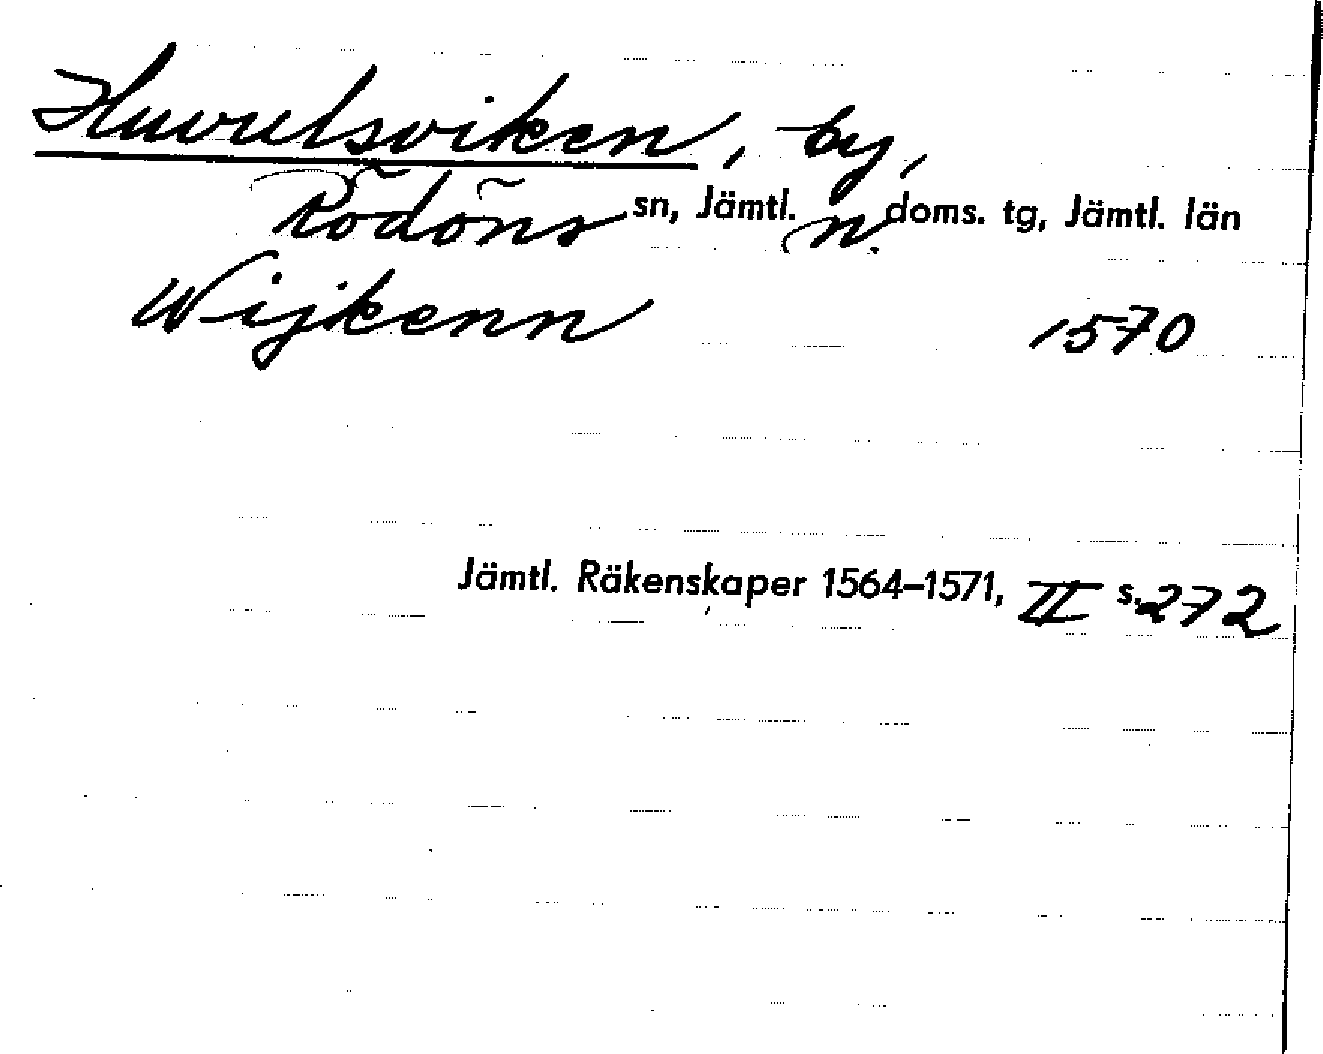 Huvulsviken, by,
Rödöns sn, Jämtl. n. doms. tg, Jämtl. län
Wijkenn 1570
Jämtl. Räkenskaper 1564–1571, II s. 272